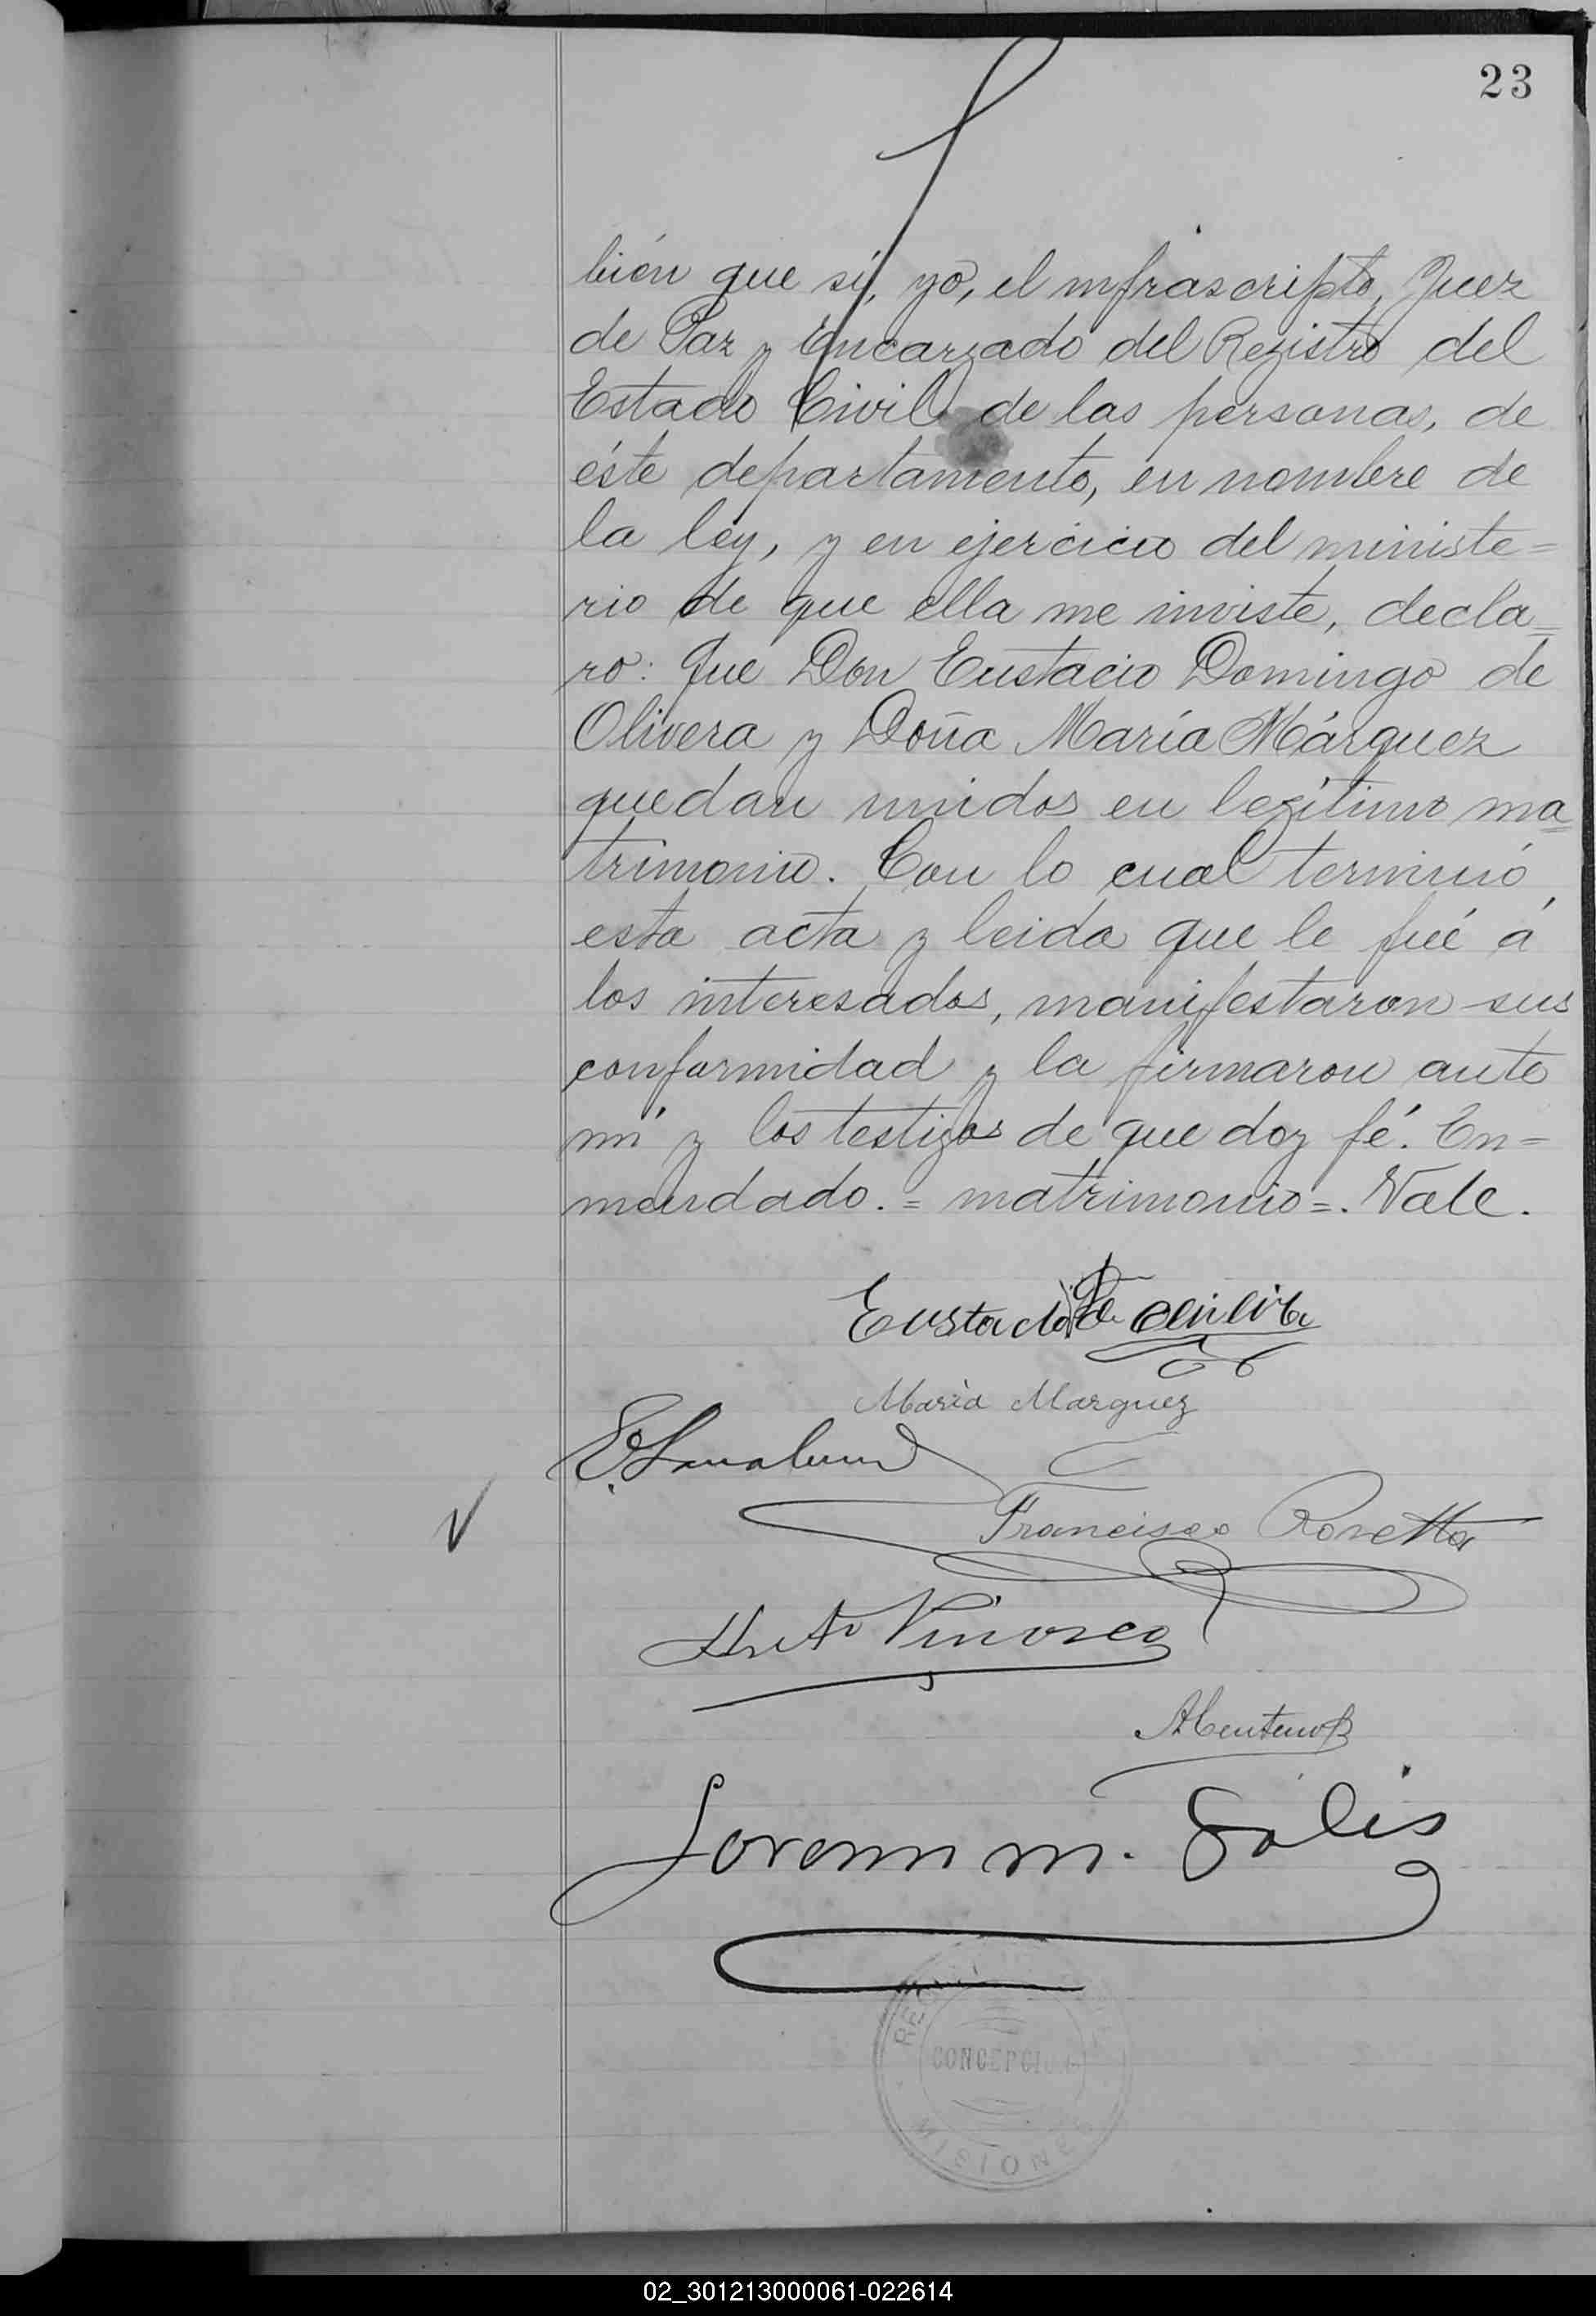 23
bién que sí, yo, el infrascripto, Juez
de Paz y Encargado del Registro del
Estado Civil de las personas, de
éste departamento, en nombre de
la ley, y en ejercicio del ministe=
rio de que ella me inviste, decla=
ro: Que Don Eustacio Domingo de
Olivera y Doña María Márquez
quedan unidos en legítimo ma=
trimonio. Con lo cual terminó
esta acta y leida que le fué á
los interesados, manifestaron sus
conformidad y la firmaron ante
mí y los testigos de que doy fé. En=
mendado.= matrimonio=. Vale.
Eustacio de
María Marquez
Francisco Rovetta
Lorenzo M. Solis
CONCEPCION
MISIONES
02_301213000061-022614